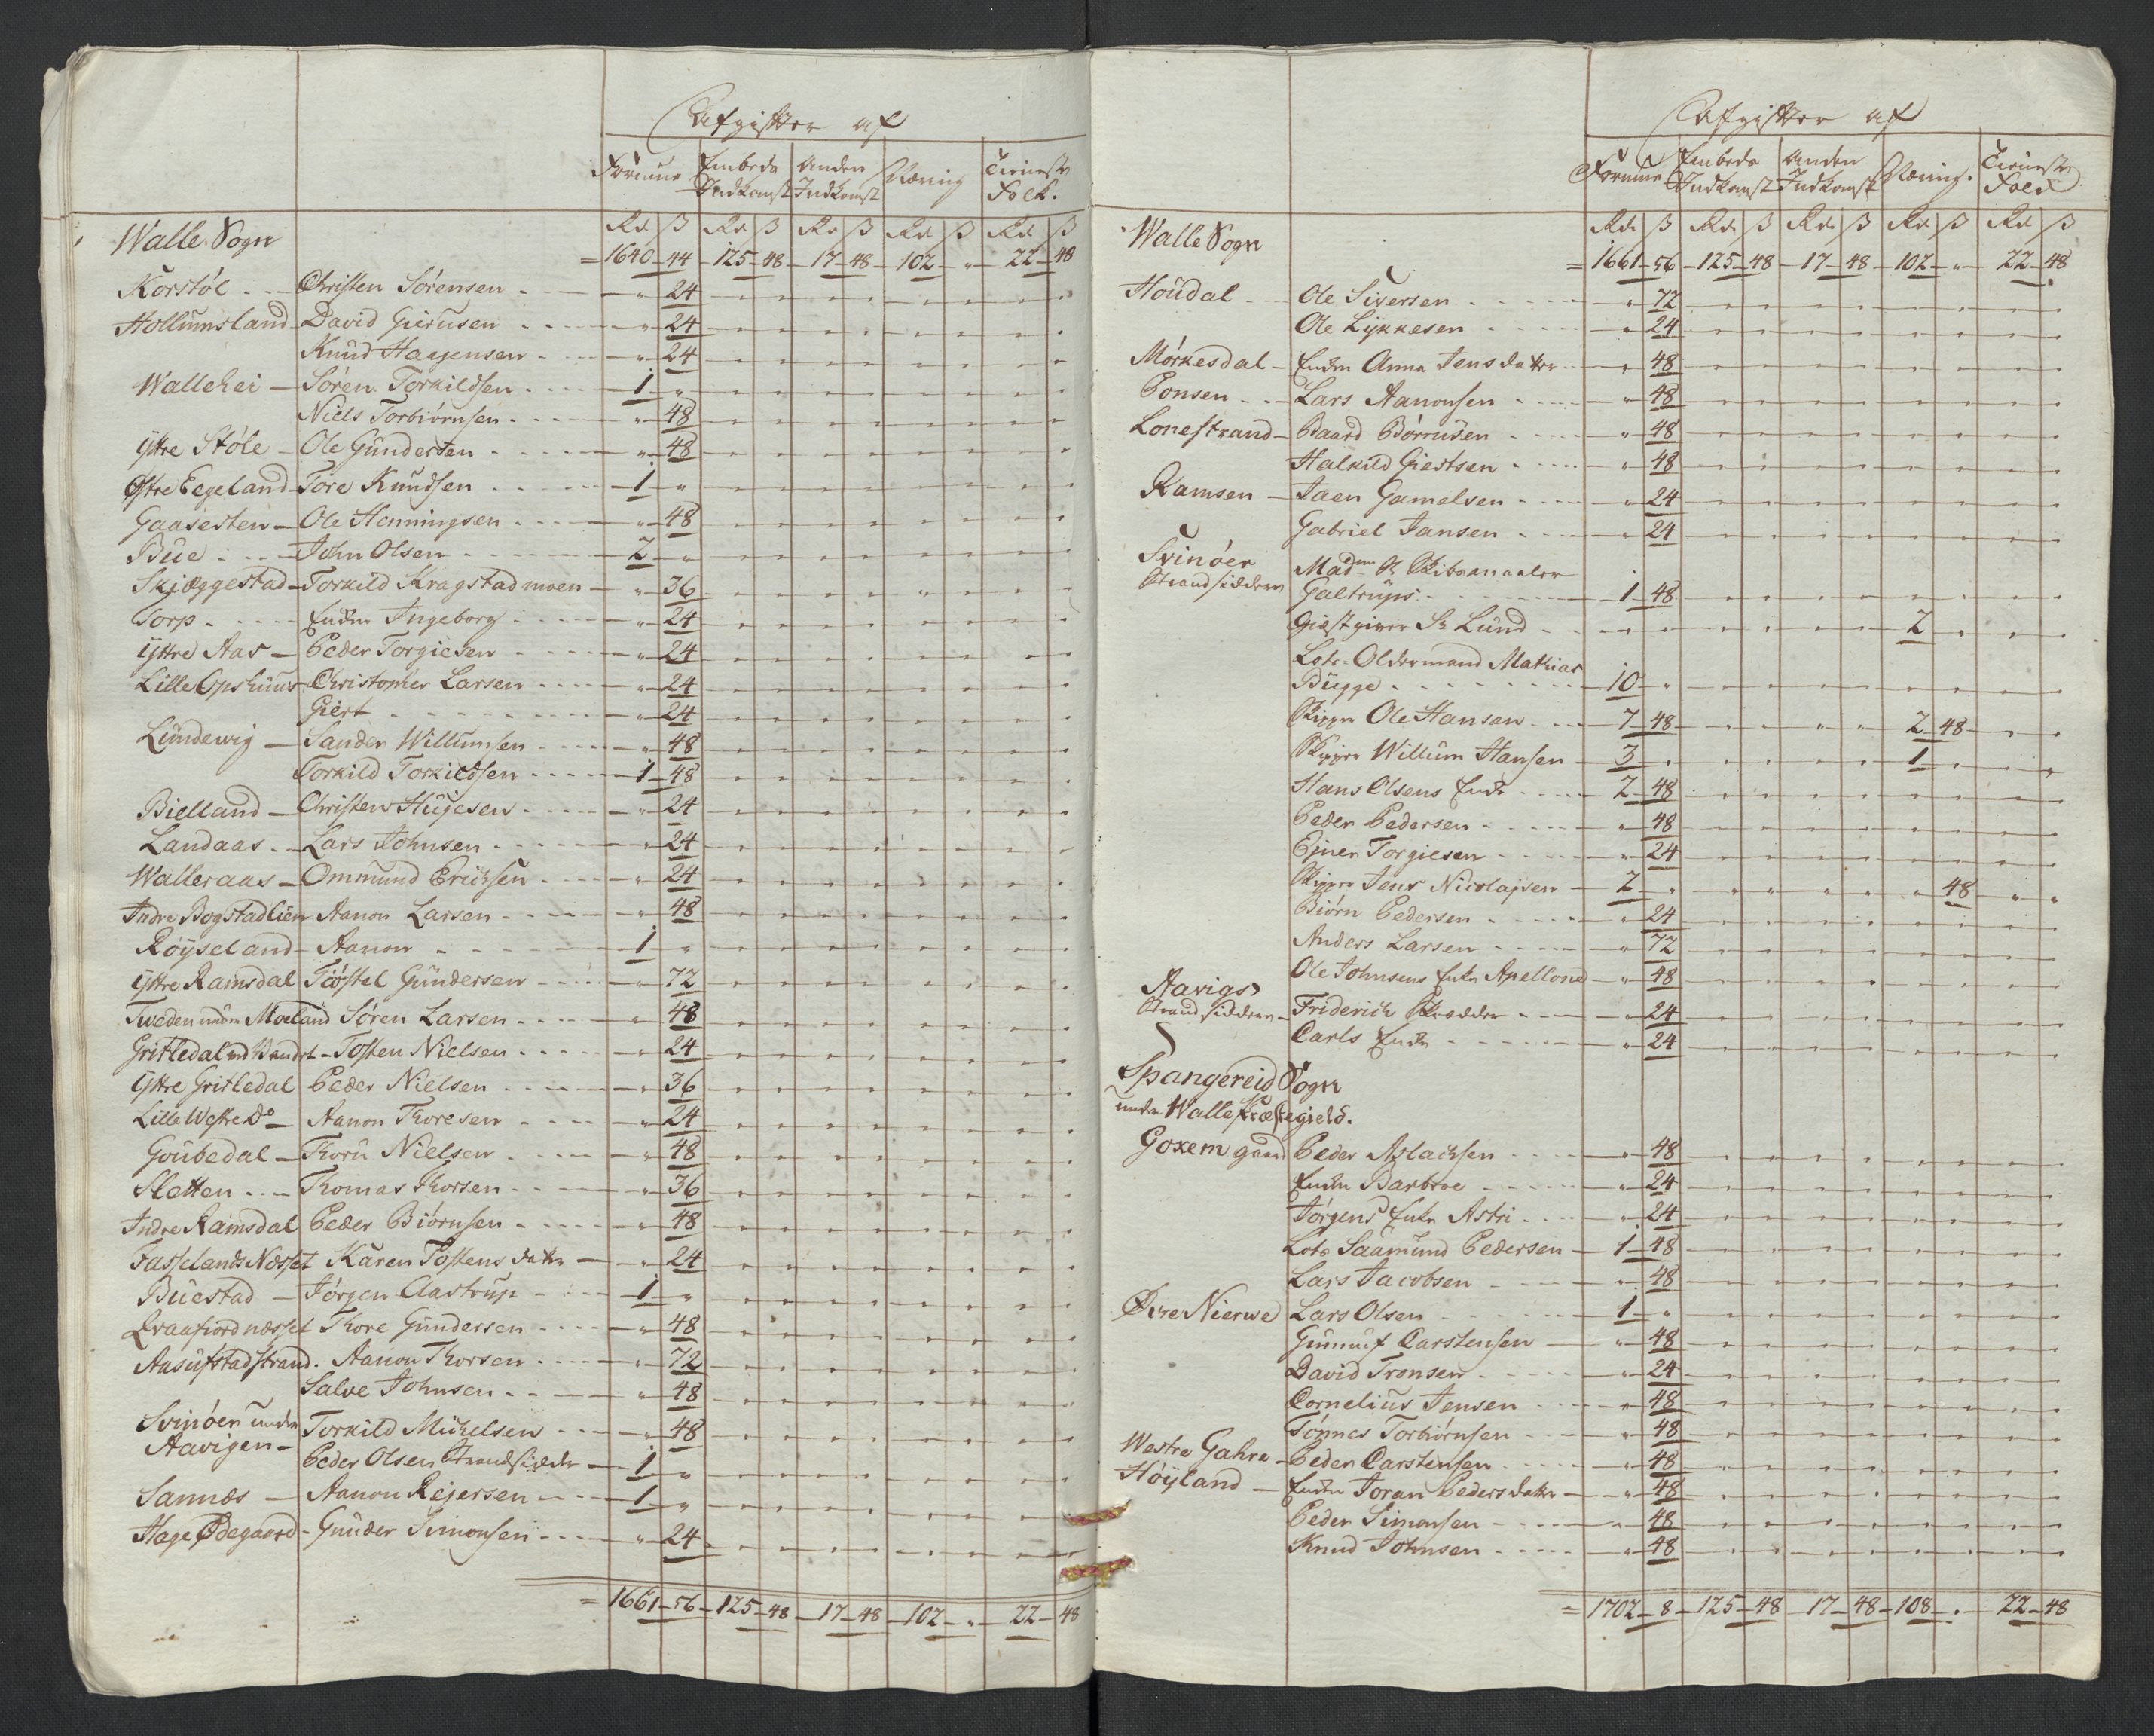 Afgifter af
Formue Embeds Indkomst Anden Indkomst Næring Tieniste Folk.
Rd ß Rd ß Rd ß Rd ß Rd ß
Walle Sogn
= 1640 - 44 - 125 - 48 - 17 - 48 - 102 - „ - 22 - 48
Korstøl - Christen Sørensen - „ - 24
Hollumsland - David Gierusen - „ - 24
Knud Haagensen - „ - 24
Wallehei - Søren Torkildsen - 1 - „
Niels Torbiørnsen - „ - 48
Ÿttre Støle - Ole Gundersen - „ - 48
Østre Eegeland - Tore Knudsen - 1 - „
Gaasesten - Ole Henningsen - „ - 48
Bue - John Olsen - 2 - „
Skiæggestad - Torkild Kragstadmoen - „ - 36
Torp - Enken Ingeborg - „ - 24
Ÿttre Aas - Peder Torgiesen - „ - 24
Lille Opshuus - Christopher Larsen - „ - 24
Giert - „ - 24
Lundewig - Sander Willumsen - „ - 48
Torkild Torkildsen - 1 - 48
Bielland - Christen Hugesen - „ - 24
Landaas - Lars Johnsen - „ - 24
Walleraas - Ommund Erichsen - „ - 24
Indre Bogstadlien Aanon Larsen - „ - 48
Røÿseland - Aanon - 1 - „
Ÿttre Ramsdal Tostel Gundersen - „ - 72
Tweden under Moeland Søren Larsen - „ - 48
Gritledal ved Vandet - Tosten Nielsen - „ - 24
Ÿttre Gritledal Peder Nielsen - „ - 36
Lille Westre Do - Aanon Thoresen - „ - 24
Goubedal - Thoru Nielsen - „ - 48
Sletten - Thomas Thorsen - „ - 36
Indre Ramsdal Peder Biørnsen - „ - 48
Fasselands Næsset Karen Tostens datter - „ - 24
Buestad - Jørgen Aastrup - 1 - „
Qvaafiordnæsset Thore Gundersen - „ - 48
Aasufstadstrand. Aanon Thorsen - „ - 72
Salve Johnsen - „ - 48
Svinøer under Torkild Michelsen - „ - 48
Aavigen - Peder Olsen Strandsidder - 1 - „
Sannæs - Aanon Rejersen - 1 - „
Hage Ødegaard - Gunder Simonsen - „ - 24
= 1661 - 56 - 125 - 48 - 17 - 48 - 102 - „ - 22 - 48
Afgifter af
Formue Embeds Indkomst Anden Indkomst Næring. Tieniste Folk
Rd. ß Rd. ß Rd. ß Rd. ß Rd. ß
Walle Sogn
= 1661 - 56 - 125 - 48 - 17 - 48 - 102 - „ - 22 - 48
Houdal - Ole Siversen - „ - 72
Ole Lykkesen - „ - 24
Mørkesdal - Enken Anna Jens datter - „ - 48
Ponsen - Lars Aanonsen - „ - 48
Lonestrand - Baard Børrusen - „ - 48
Halkild Giertsen - „ - 48
Ramsen - Taen Gamelsen - „ - 24
Gabriel Jansen - „ - 24
Svinøer
Strandsiddere
Madme
Galtrups - 1 - 48
Giæstgiver Sr Lund - 2
Lots-Oldermand Mathias
Bugge - 10 - „
Skipper Ole Hansen - 7 - 48 - 2 - 48
Skipper Willum Hansen - 3 - „ - 1
Hans Olsens Enke - 2 - 48
Peder Pedersen - „ - 48
Ejner Torgiesen - „ - 24
Skipper Jens Nicolajsen - 2 - „ - „ - 48
Biørn Pedersen - „ - 24
Anders Larsen - „ - 72
Ole Johnsens Enke Apellone - „ - 48
Aavigs
Strandsiddere - Friderich Skrædder - „ - 24
Carls Enke - „ - 24
Spangereid Sogn
under Walle Præstegield.
Goxem gaard Peder Aslachsen - „ - 48
Enken Barbroe - „ - 24
Jørgens Enke Astri - „ - 24
Lots Saamund Pedersen - 1 - 48
Lars Jacobsen - „ - 48
Øvre Nierwe Lars Olsen - 1 - „
Gunnuf Carstensen - „ - 48
David Tronsen - „ - 24
Cornelius Jensen - „ - 48
Tønnes Torbiørnsen - „ - 48
Westre Gahre - Peder Carstensen - „ - 48
Høÿland - Enken Joran Peders datter - „ - 48
Peder Simonsen - „ - 48
Knud Johnsen - „ - 48
= 1702 - 8 - 125 - 48 - 17 - 48 - 108 - „ - 22 - 48